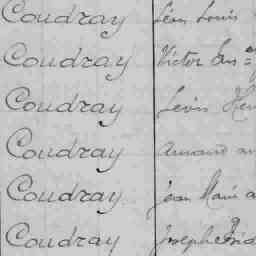 Coudray Léon Louis
Coudray Victor
Coudray Léon
Coudray Armand
Coudray Jean Marie
Coudray Joseph